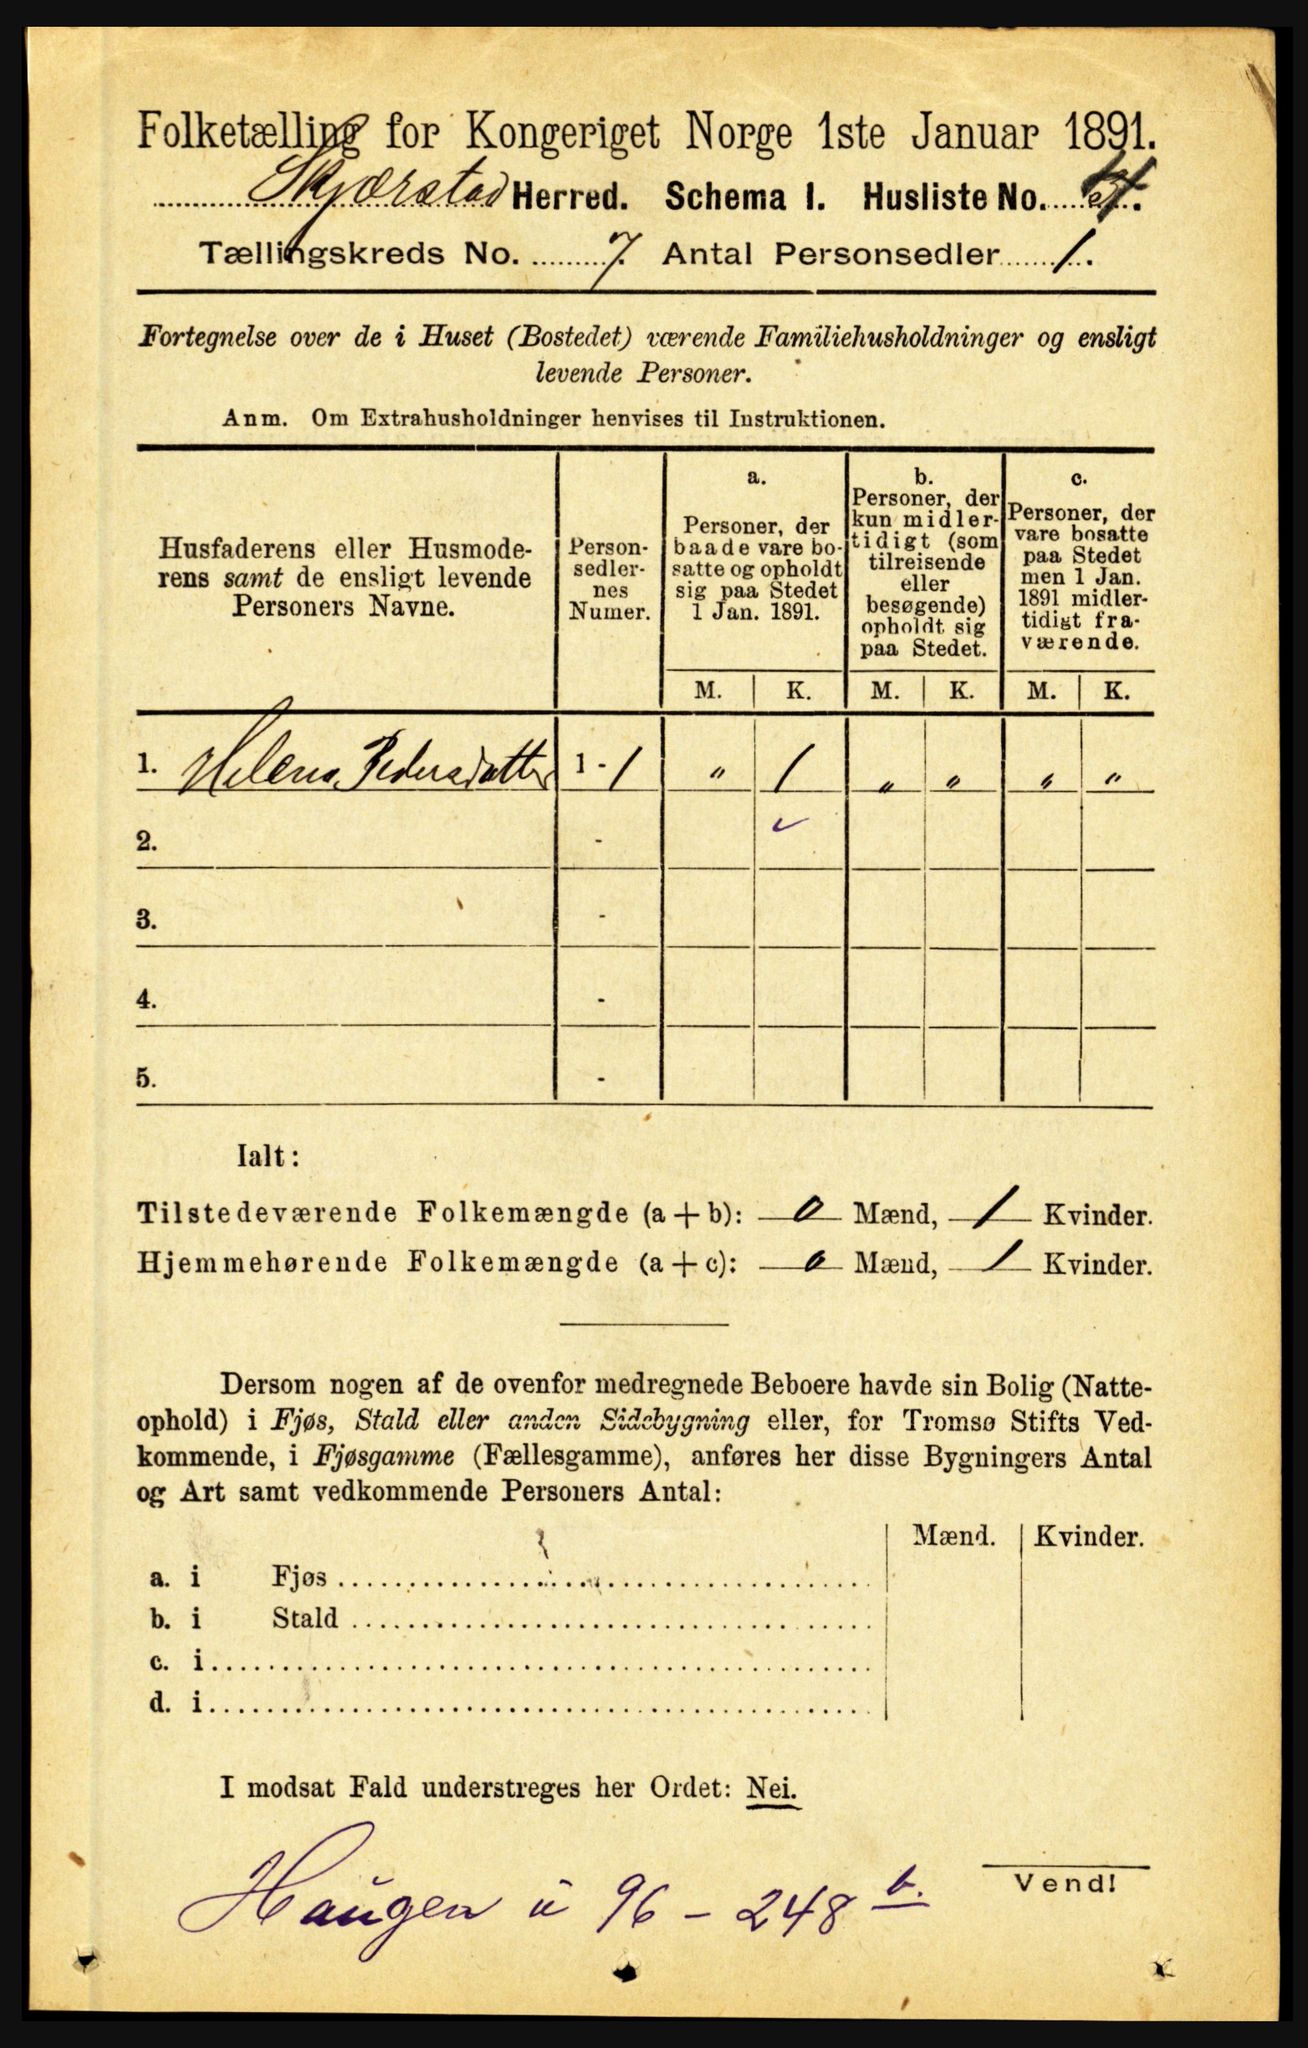 Folketælling for Kongeriget Norge 1ste Januar 1891.
Skjærstad Herred. Schema 1. Husliste No.
Tællingskreds No. 7. Antal Personsedler 1.
Fortegnelse over de i Huset (Bostedet) værende Familiehusholdninger og ensligt
levende Personer.
Anm. Om Extrahusholdninger henvises til Instruktionen.
Husfaderens eller Husmode-
rens samt de ensligt levende
Personers Navne.
Person-
sedler-
nes
Numer.
a.
Personer, der
baade vare bo-
satte og opholdt
sig paa Stedet
1 Jan. 1891.
b.
Personer, der
kun midler-
tidigt (som
tilreisende
eller
besøgende)
opholdt sig
paa Stedet.
c.
Personer, der
vare bosatte
paa Stedet
men 1 Jan.
1891 midler-
tidigt fra-
værende.
M. K. M. K. M. K.
1. Helena Pedersdatter 1 - 1 " 1 " " " "
2. -
3. -
4. -
5. -
Ialt:
Tilstedeværende Folkemængde (a + b): 0 Mænd, 1 Kvinder.
Hjemmehørende Folkemængde (a + c): 0 Mænd, 1 Kvinder.
Dersom nogen af de ovenfor medregnede Beboere havde sin Bolig (Natte-
ophold) i Fjøs, Stald eller anden Sidebygning eller, for Tromsø Stifts Ved-
kommende, i Fjøsgamme (Fællesgamme), anføres her disse Bygningers Antal
og Art samt vedkommende Personers Antal:
Mænd. Kvinder.
a. i Fjøs
b. i Stald
c. i
d. i
I modsat Fald understreges her Ordet: Nei.
Vend!
Haugen u 96 - 248 b.